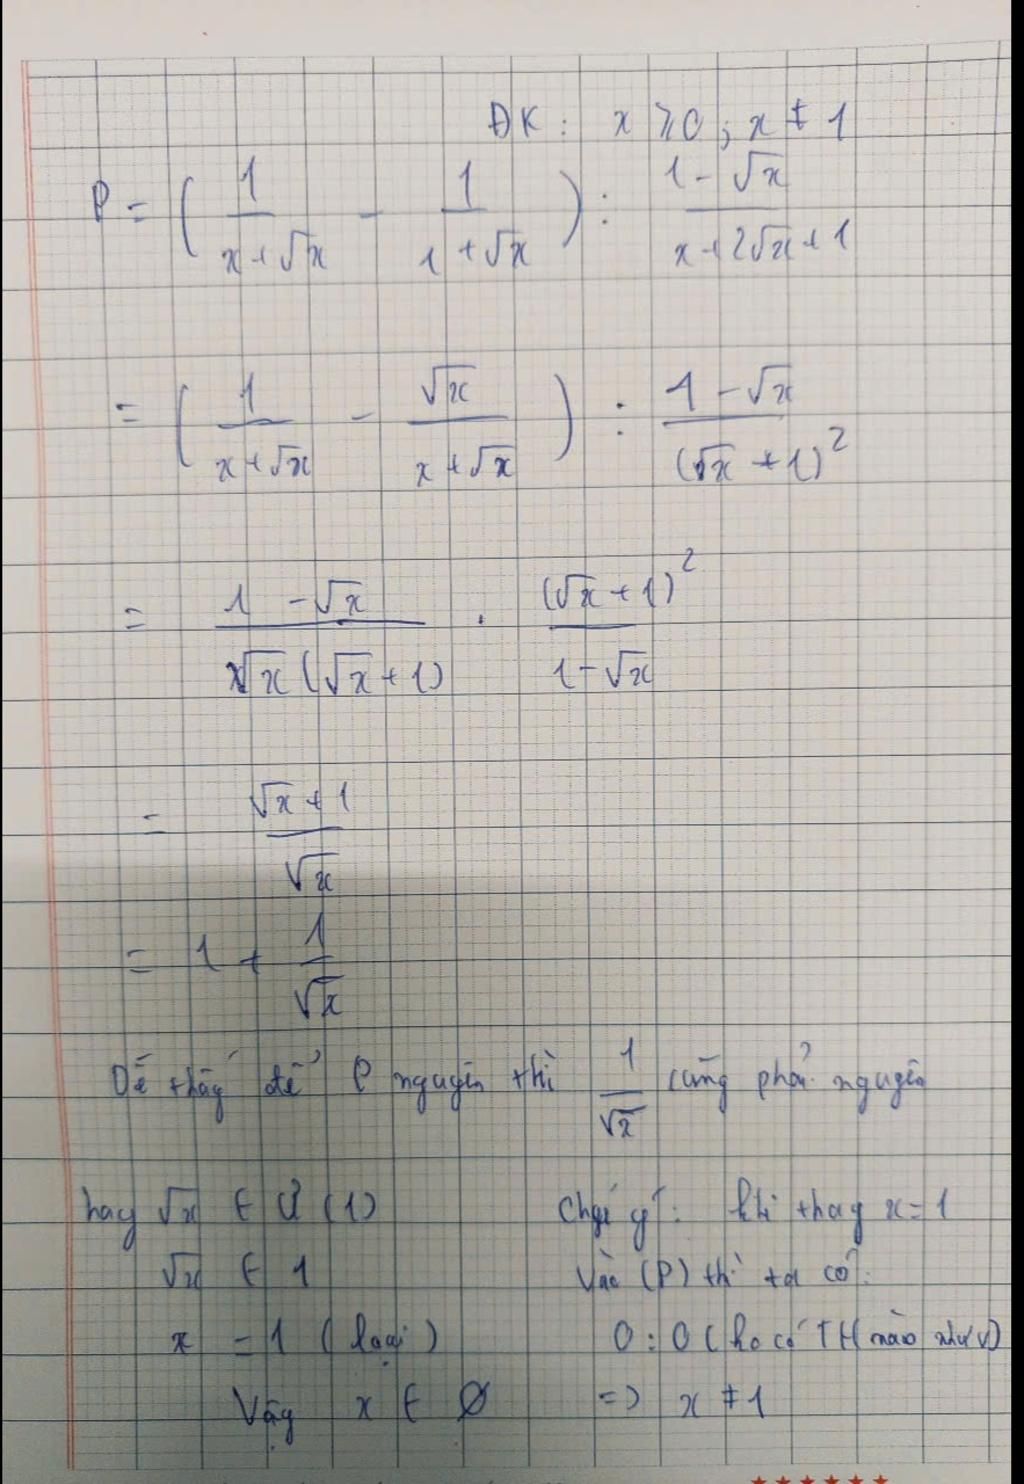 ĐK: x ≥ 0; x ≠ 1
P = ( 1/(x+√x) - 1/(1+√x) ) : (1-√x)/(x+2√x+1)
= ( 1/(x+√x) - √x/(x+√x) ) : (1-√x)/(√x+1)²
= (1-√x)/(√x(√x+1)) . (√x+1)²/(1-√x)
= (√x+1)/√x
= 1 + 1/√x
Dễ thấy để P nguyên thì 1/√x cũng phải nguyên
hay √x ∈ Ư(1)
√x ∈ 1
x = 1 (loại)
Vậy x ∈ Ø
Chú ý: khi thay x=1
vào (P) thì ta có:
0:0 (ko có TH nào như v)
=> x ≠ 1